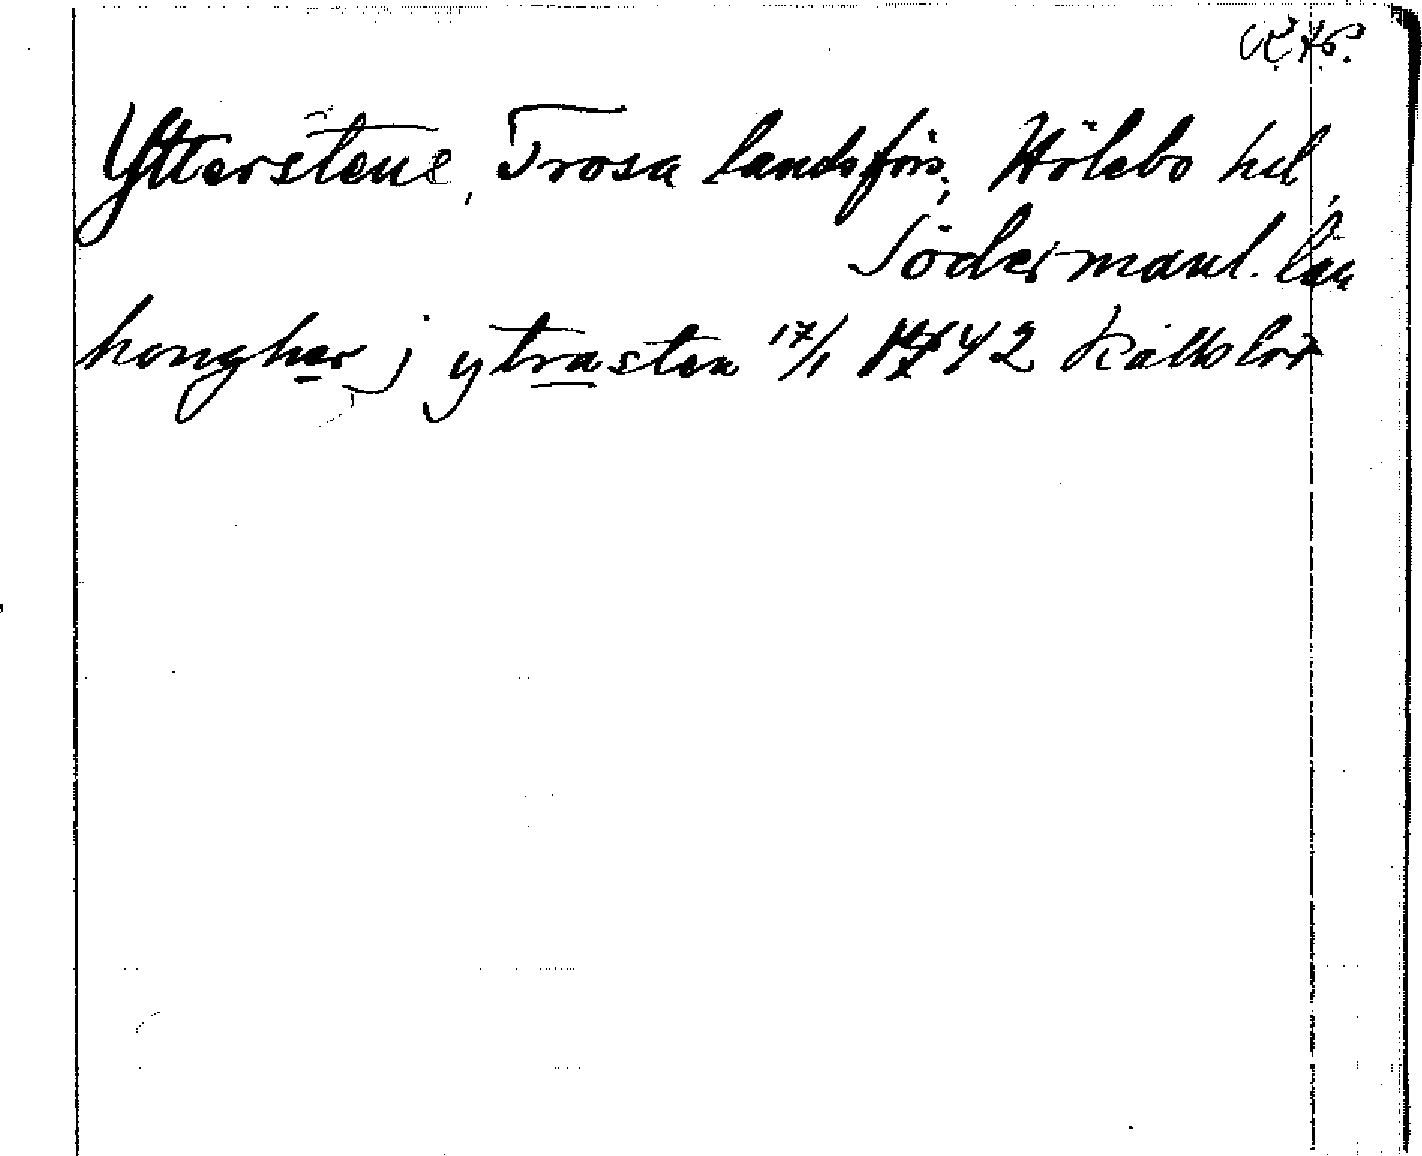 Ytterstene, Trosa landsförs., Hölebo hd,
Södermanl. län
hongher j ytrasten 17/1 1442